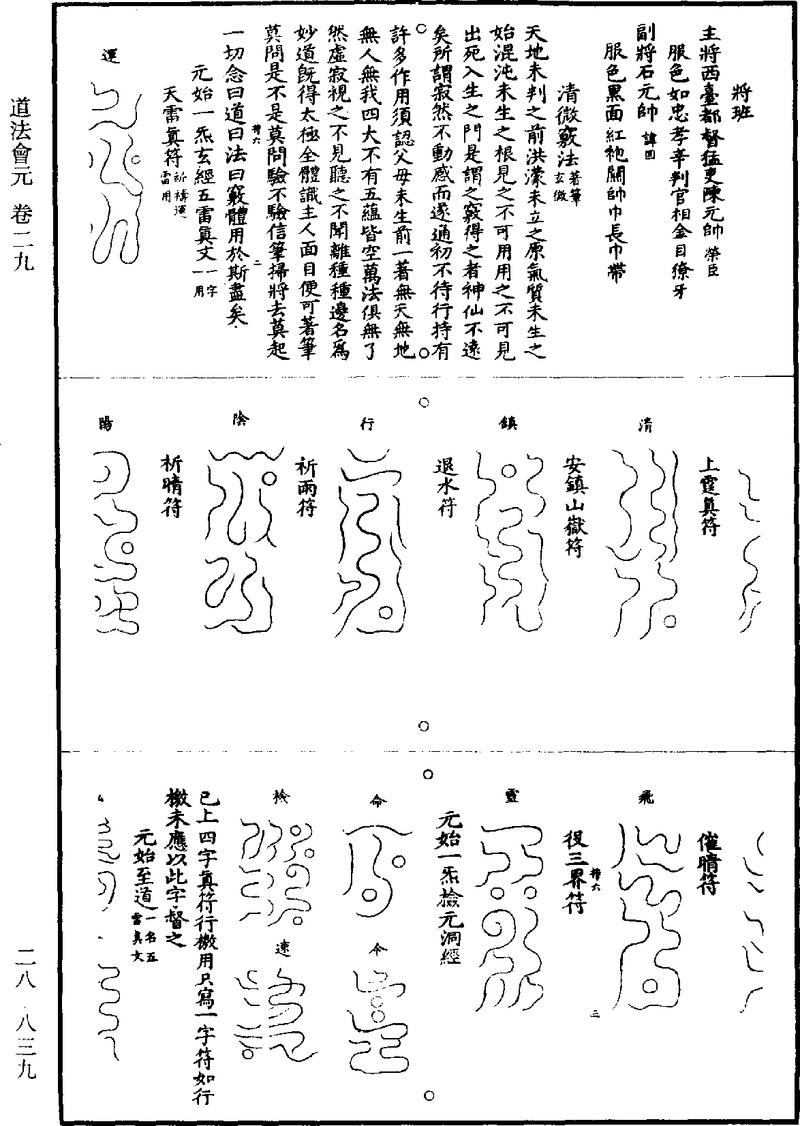 將班
主將西臺都督猛吏陳元帥 榮臣
服色如忠孝辛判官相金目獠牙
副將石元帥 諱固
服色黑面紅袍關帥巾長巾帶
清微竅法 著筆玄微
天地未判之前洪濛未立之原氣質未生之
始混沌未生之根見之不可用用之不可見
出死入生之門是謂之竅得之者神仙不遠
矣所謂寂然不動感而遂通初不待行持有
許多作用須認父母未生前一著無天無地
無人無我四大不有五蘊皆空萬法俱無了
然虛寂視之不見聽之不聞離種種邊名爲
妙道旣得太極全體識主人面目便可著筆
莫問是不是莫問驗不驗信筆掃將去莫起
一切念曰道曰法曰竅體用於斯盡矣
元始一炁玄經五雷眞文 一字一用
天雷眞符 祈禱運雷用
運
上靈眞符
清
安鎮山嶽符
鎮
退水符
行
祈雨符
陰
祈晴符
陽
催晴符
飛
役三界符
靈
元始一炁檢元洞經
命
令
檢
速
已上四字眞符行檄用只寫一字符如行
檄未應以此字督之
元始至道 一名五雷眞文
道法會元 卷二九
二八 八三九